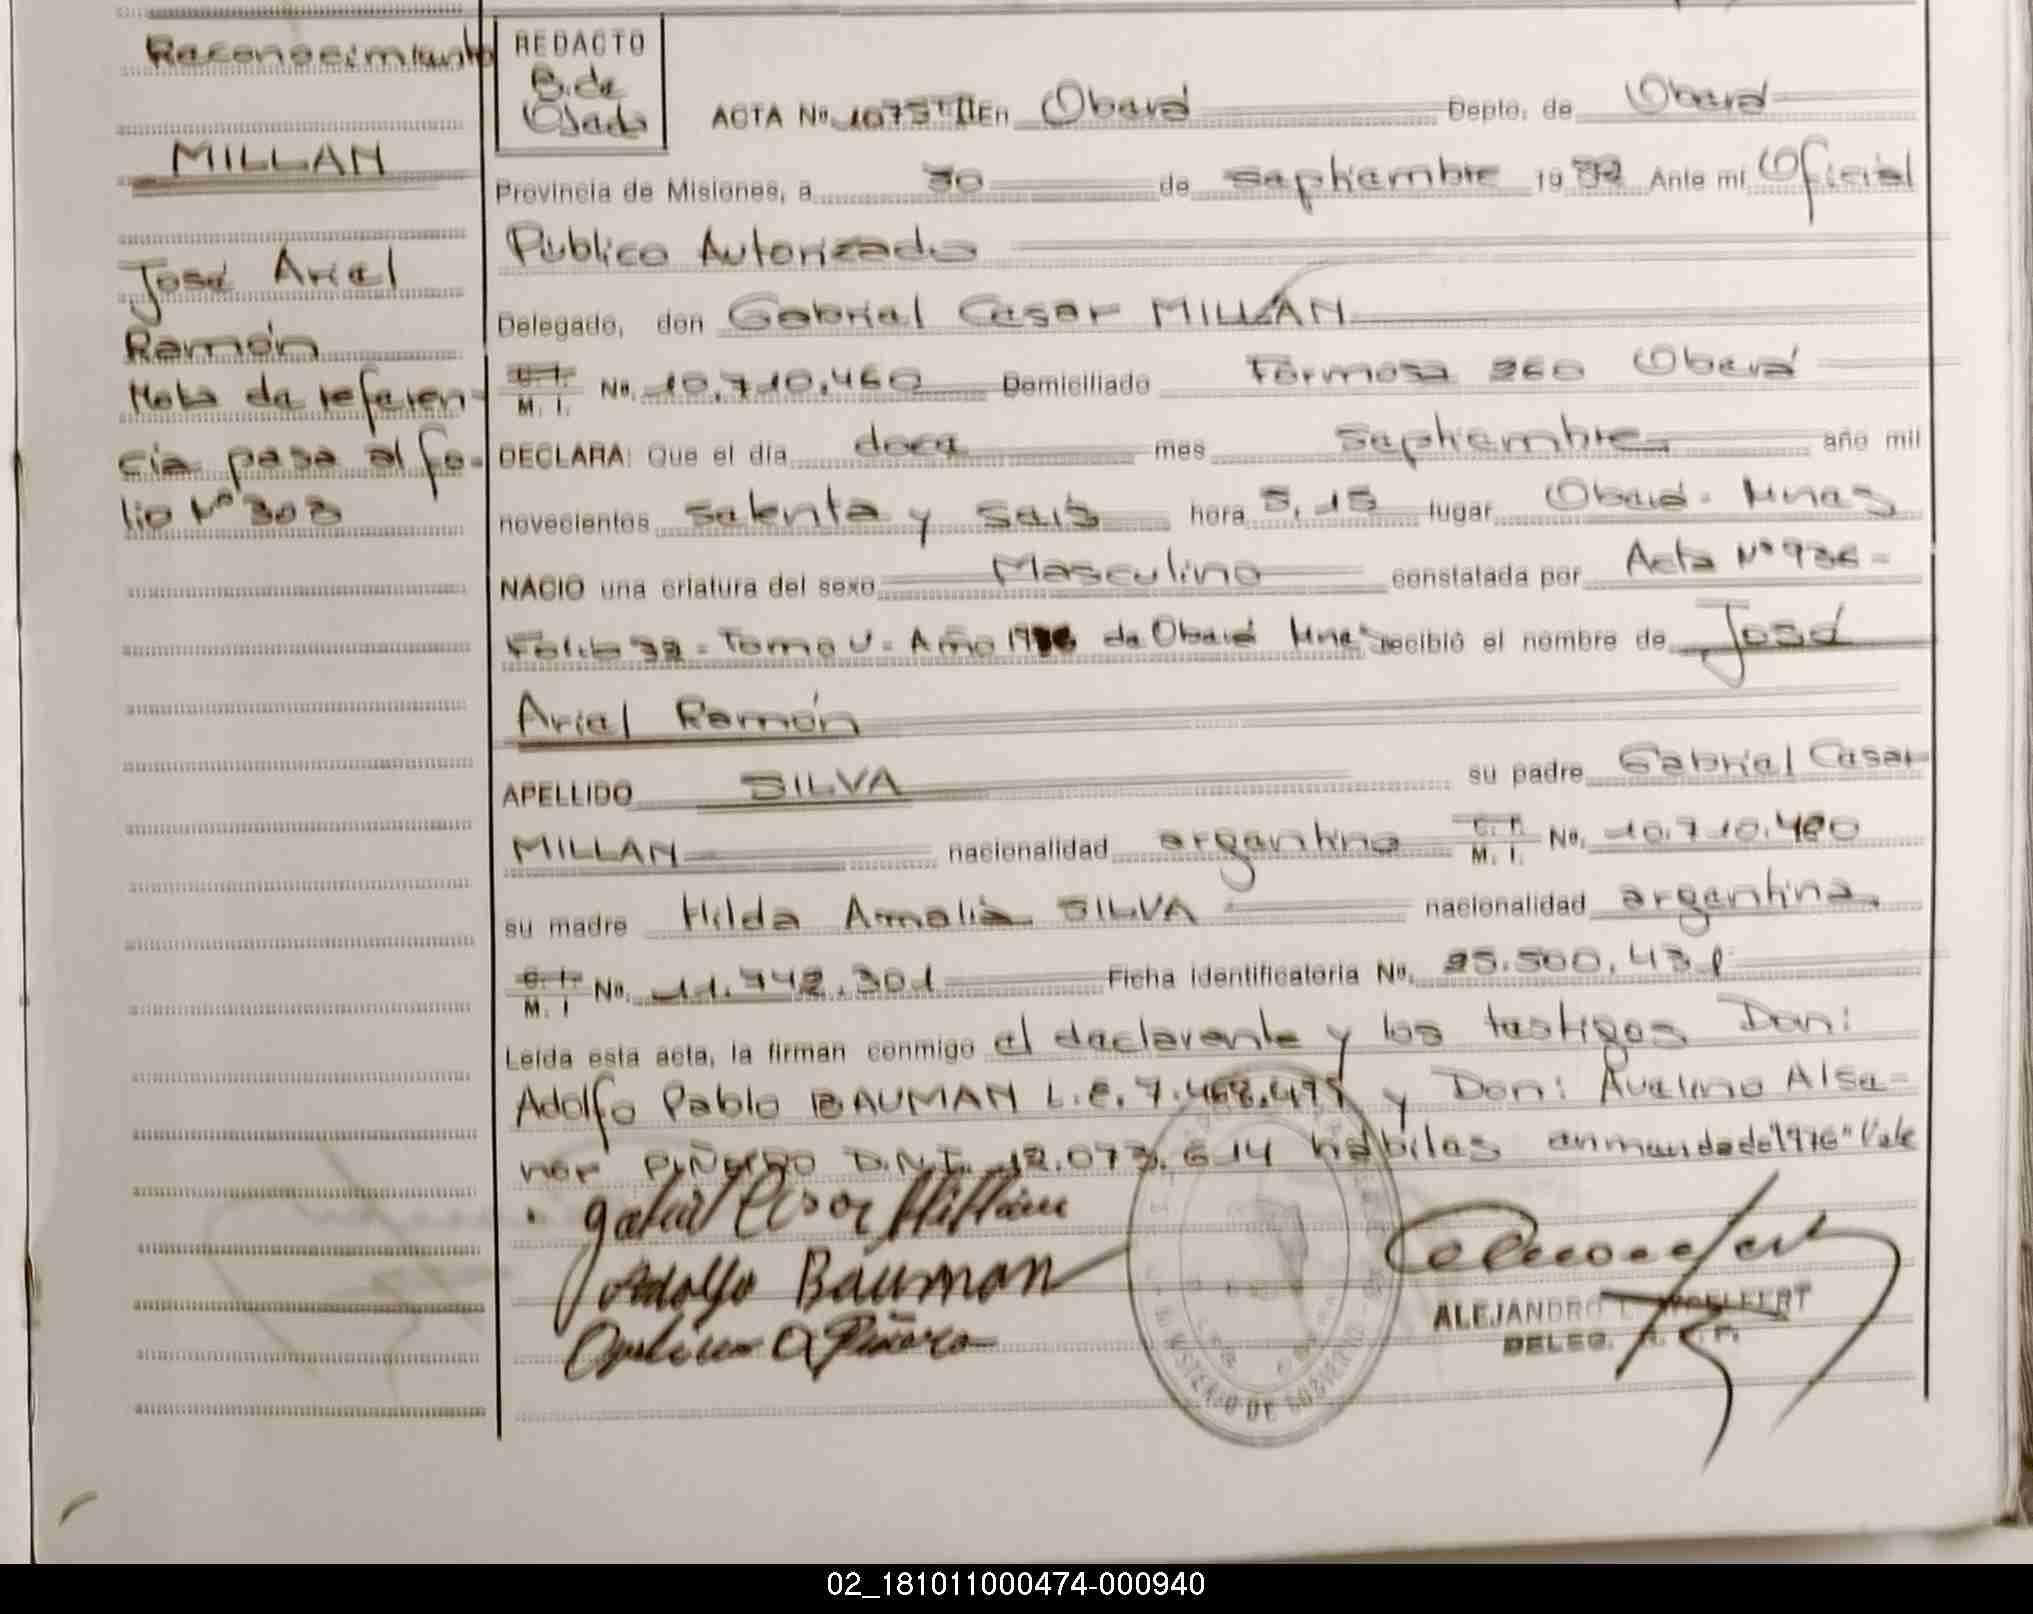 Reconocimiento
MILLAN
José Ariel
Ramón
Nota de referen-
cia pasa al fo-
lio Nº 303
REDACTO
B. de
ACTA Nº 1075 TII En Oberá Depto. de Oberá
Provincia de Misiones, a 30 de septiembre 19 82 Ante mí Oficial
Público Autorizado
Delegado, don Gabriel Cesar MILLÁN
C. I. M. I. No. 10.710.460 Domiciliado Formosa 260 Oberá
DECLARA: Que el día doce mes septiembre año mil
novecientos setenta y seis hora 5,15 lugar Oberá - Mnes
NACIO una criatura del sexo Masculino constatada por Acta Nº 936 -
Folio 32 - Tomo V - Año 1976 de Oberá Mnes recibió el nombre de José
Ariel Ramón
APELLIDO SILVA su padre Gabriel Cesar
MILLAN nacionalidad argentino C. I. M. I. No. 10.710.460
su madre Hilda Amalia SILVA nacionalidad argentina
C. I. M. I No. 11.742.301 Ficha identificatoria No. 25.500.431
Leída esta acta, la firman conmigo el declarante y los testigos Don:
Adolfo Pablo BAUMAN L.E. 7.468.495 y Don: Avelino Alse-
nor PIÑEIRO D.N.I. 12.073.614 hábiles enmendado "1976" Vale
Gabriel Cesar Millán
Adolfo Bauman
ALEJANDRO
DELEG.
MINISTERIO DE GOBIERNO
02_181011000474-000940